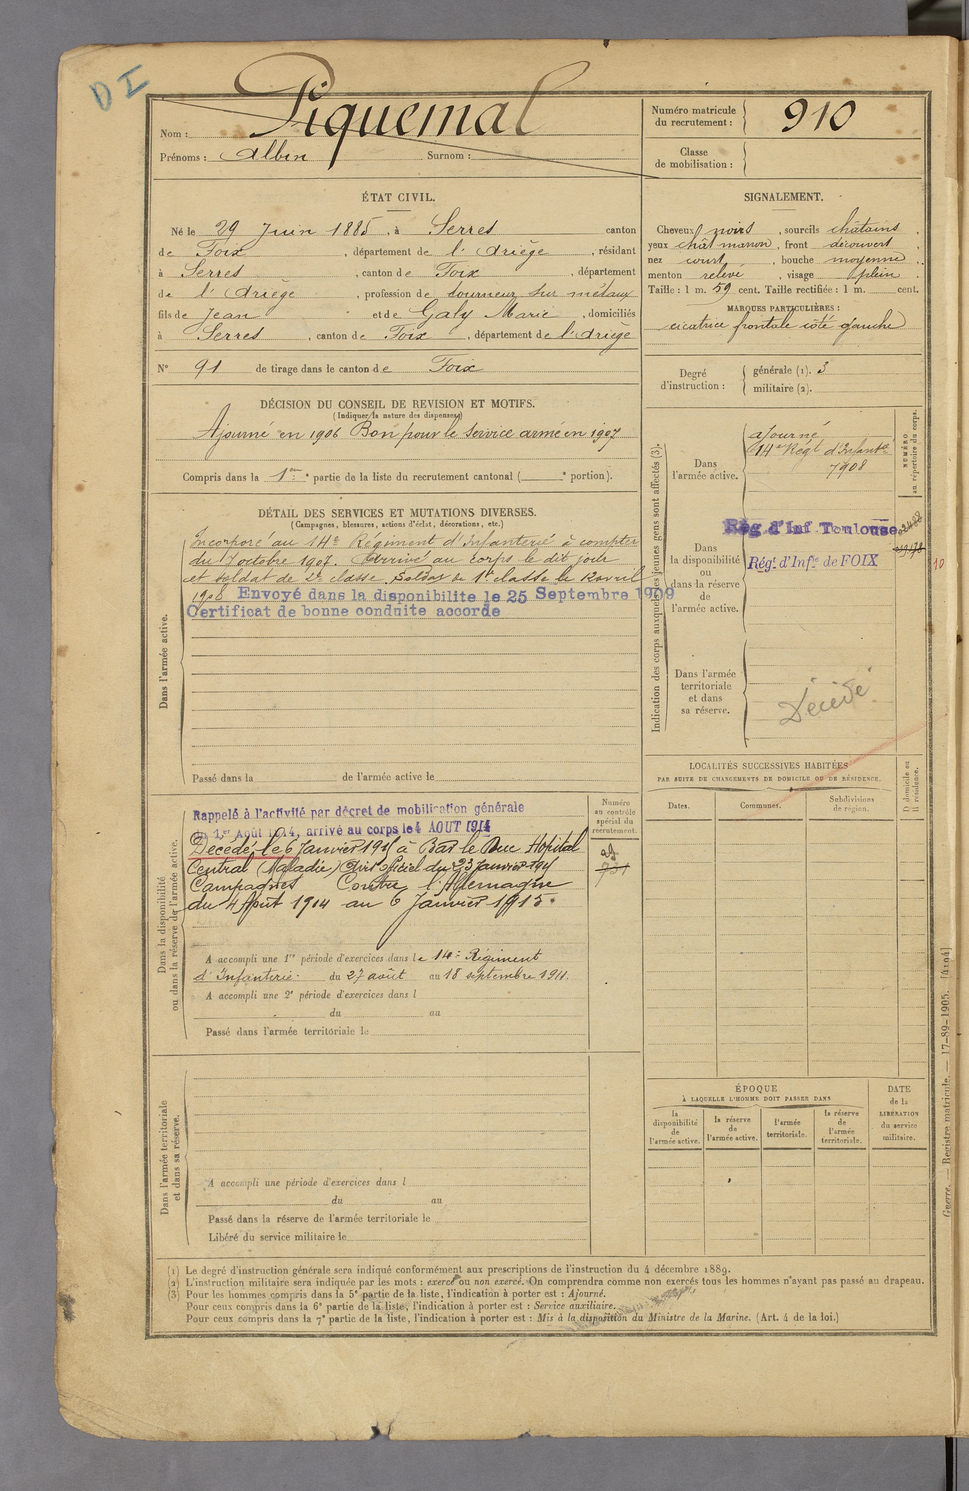 D I
Nom : Piquemal
Prénoms : Albin Surnom :
Numéro matricule
du recrutement : 910
Classe
de mobilisation :
ÉTAT CIVIL.
Né le 29 Juin 1885, à Serres canton
de Foix, département de l'Ariège, résidant
à Serres, canton de Foix, département
de l'Ariège, profession de tourneur sur métaux
fils de Jean et de Galy Marie, domiciliés
à Serres, canton de Foix, département de l'Ariège
N° 91 de tirage dans le canton de Foix
SIGNALEMENT.
Cheveux noirs, sourcils châtains,
yeux chât marron, front découvert
nez court, bouche moyenne,
menton relevé, visage plein.
Taille : 1 m. 59 cent. Taille rectifiée : 1 m. cent.
MARQUES PARTICULIÈRES :
cicatrice frontale côté gauche
Degré
d'instruction :
générale (1). 3
militaire (2).
DÉCISION DU CONSEIL DE REVISION ET MOTIFS.
(Indiquer la nature des dispenses)
Ajourné en 1906 Bon pour le service armé en 1907
Compris dans la 1re partie de la liste du recrutement cantonal ( e portion).
DÉTAIL DES SERVICES ET MUTATIONS DIVERSES.
(Campagnes, blessures, actions d'éclat, décorations, etc.)
Dans l'armée active.
Incorporé au 14e Régiment d'Infanterie à compter
du 7 octobre 1907. Arrivé au corps le dit jour
et soldat de 2e classe. Soldat de 1e classe le avril
1908 Envoyé dans la disponibilite le 25 Septembre 1909
Certificat de bonne conduite accorde
Passé dans la de l'armée active le
Indication des corps auxquels les jeunes gens sont affectés (3).
Dans
l'armée active.
ajourné
14e Régt d'Infantie
1908
NUMÉRO
au répertoire du corps.
Dans
la disponibilité
ou
dans la réserve
de
l'armée active.
Rég d'Inf Toulouse
Régt d'Infie de FOIX
10
Dans l'armée
territoriale
et dans
sa réserve.
Décédé
LOCALITÉS SUCCESSIVES HABITÉES
PAR SUITE DE CHANGEMENTS DE DOMICILE OU DE RÉSIDENCE.
Dates.
Communes.
Subdivisions
de région.
D domicile ou
R résidence.
Dans la disponibilité
ou dans la réserve de l'armée active.
Rappelé à l'activité par décret de mobilisation générale
du 1er Août 1914, arrivé au corps le 4 AOUT 1914
Décédé le 6 Janvier 1915 à Bar le Duc Hôpital
Central (Maladie) Avis officiel du 23 Janvier 1915
Campagnes Contre l'Allemagne
du 4 Août 1914 au 6 Janvier 1915.
Numéro
au contrôle
spécial du
recrutement.
A accompli une 1re période d'exercices dans le 14e Régiment
d'Infanterie. du 27 août au 18 septembre 1911.
A accompli une 2e période d'exercices dans l
du au
Passé dans l'armée territoriale le
Dans l'armée territoriale
et dans sa réserve.
A accompli une période d'exercices dans l
du au
Passé dans la réserve de l'armée territoriale le
Libéré du service militaire le
ÉPOQUE
À LAQUELLE L'HOMME DOIT PASSER DANS
la
disponibilité
de
l'armée active.
la réserve
de
l'armée active.
l'armée
territoriale.
la réserve
de
l'armée
territoriale.
DATE
de la
LIBÉRATION
du service
militaire.
Guerre. — Registre matricule. — 17-89-1905. [4194]
(1) Le degré d'instruction générale sera indiqué conformément aux prescriptions de l'instruction du 4 décembre 1889.
(2) L'instruction militaire sera indiquée par les mots : exercé ou non exercé. On comprendra comme non exercés tous les hommes n'ayant pas passé au drapeau.
(3) Pour les hommes compris dans la 5e partie de la liste, l'indication à porter est : Ajourné.
Pour ceux compris dans la 6e partie de la liste, l'indication à porter est : Service auxiliaire.
Pour ceux compris dans la 7e partie de la liste, l'indication à porter est : Mis à la disposition du Ministre de la Marine. (Art. 4 de la loi.)